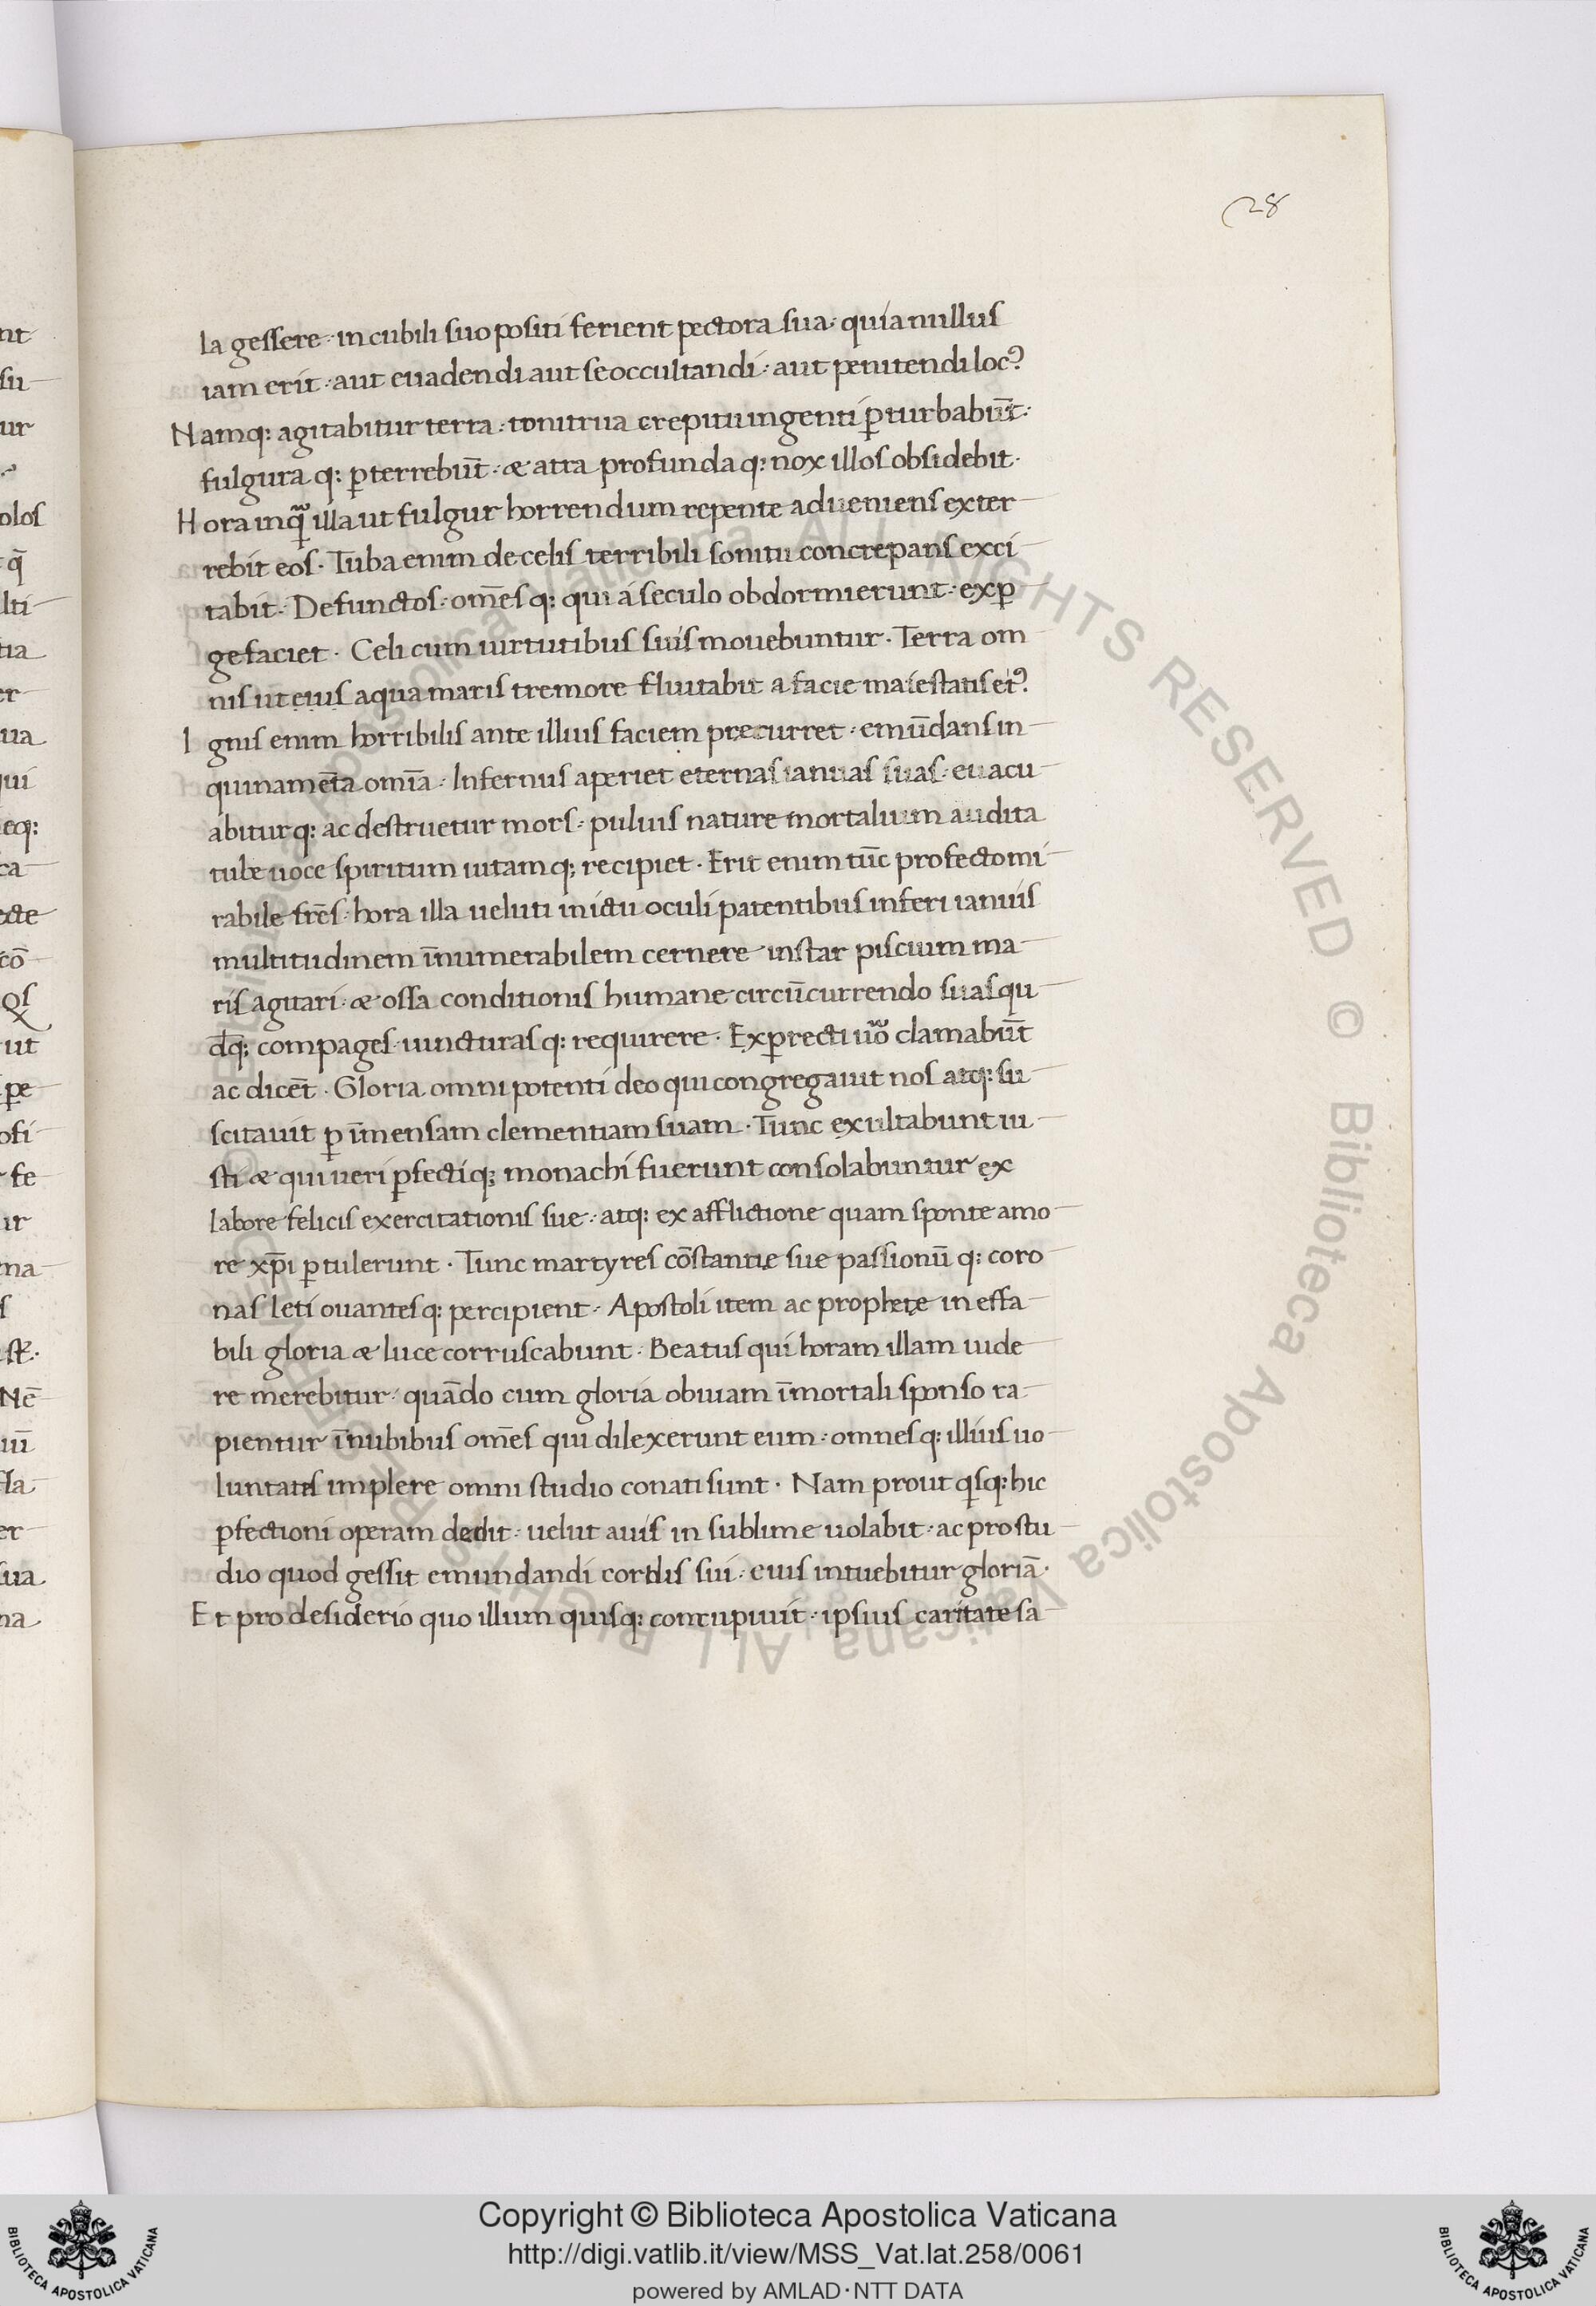 28
la gessere · in cubili suo positi ferient pectora sua · quia nullus
iam erit · aut euadendi aut se occultandi · aut penitendi locꝰ
Namq; agitabitur terra · tonitrua crepitu ingenti ꝑturbabūt ·
fulgura q; ꝑterrebūt · & atra profunda q; nox illos obsidebit ·
Hora inqͣ illa ut fulgur horrendum repente adueniens exter
rebit eos · Tuba enim de celis terribili sonitu concrepans exci
tabit · Defunctos · om̄es q; qui á seculo obdormierunt · exꝑ
gefaciet · Celi cum uirtutibus suis mouebuntur · Terra om
nis ut eius aqua maris tremore fluitabit a facie maiestatis eiꝰ
Ignis enim horribilis ante illius faciem precurret · emūdans in
quinamēta omīa · Infernus aperiet eternas ianuas suas · euacu
abitur q; ac destruetur mors · puluis nature mortalium audita
tube uoce spiritum uitam q; recipiet · Erit enim tūc profecto mi
rabile fr̄es · hora illa ueluti in ictu oculi patentibus inferi ianuis
multitudinem īnumerabilem cernere instar piscium ma
ris agitari · & ossa conditionis humane circūcurrendo suas qu
dq̄; compages iuncturas q; requirere · Exꝑrecti uº clamabūt
ac dicēt · Gloria omnipotenti deo qui congregauit nos atq; su
scitauit ꝑ īmensam clementiam suam · Tunc exultabunt iu
sti & qui ueri ꝑfectiq; monachi fuerunt consolabuntur ex
labore felicis exercitationis sue · atq; ex afflictione quam sponte amo
re xp̄i ꝑtulerunt · Tunc martyres cōstantie sue passionū q; coro
nas leti ouantesq; percipient · Apostoli item ac prophetę ineffa
bili gloria & luce corruscabunt · Beatus qui horam illam uide
re merebitur · quādo cum gloria obuiam īmortali sponso ra
pientur ī nubibus om̄es qui dilexerunt eum · omnes q; illius uo
luntates implere omni studio conati sunt · Nam prout qisq; hic
ꝑfectioni operam dedit · uelut auis in sublime uolabit · ac pro stu
dio quod gessit emundandi cordis sui · eius intuebitur gloriā ·
Et pro desiderio quo illum quisq; concupiuit · ipsius caritate sa
Copyright © Biblioteca Apostolica Vaticana
http://digi.vatlib.it/view/MSS_Vat.lat.258/0061
powered by AMLAD·NTT DATA